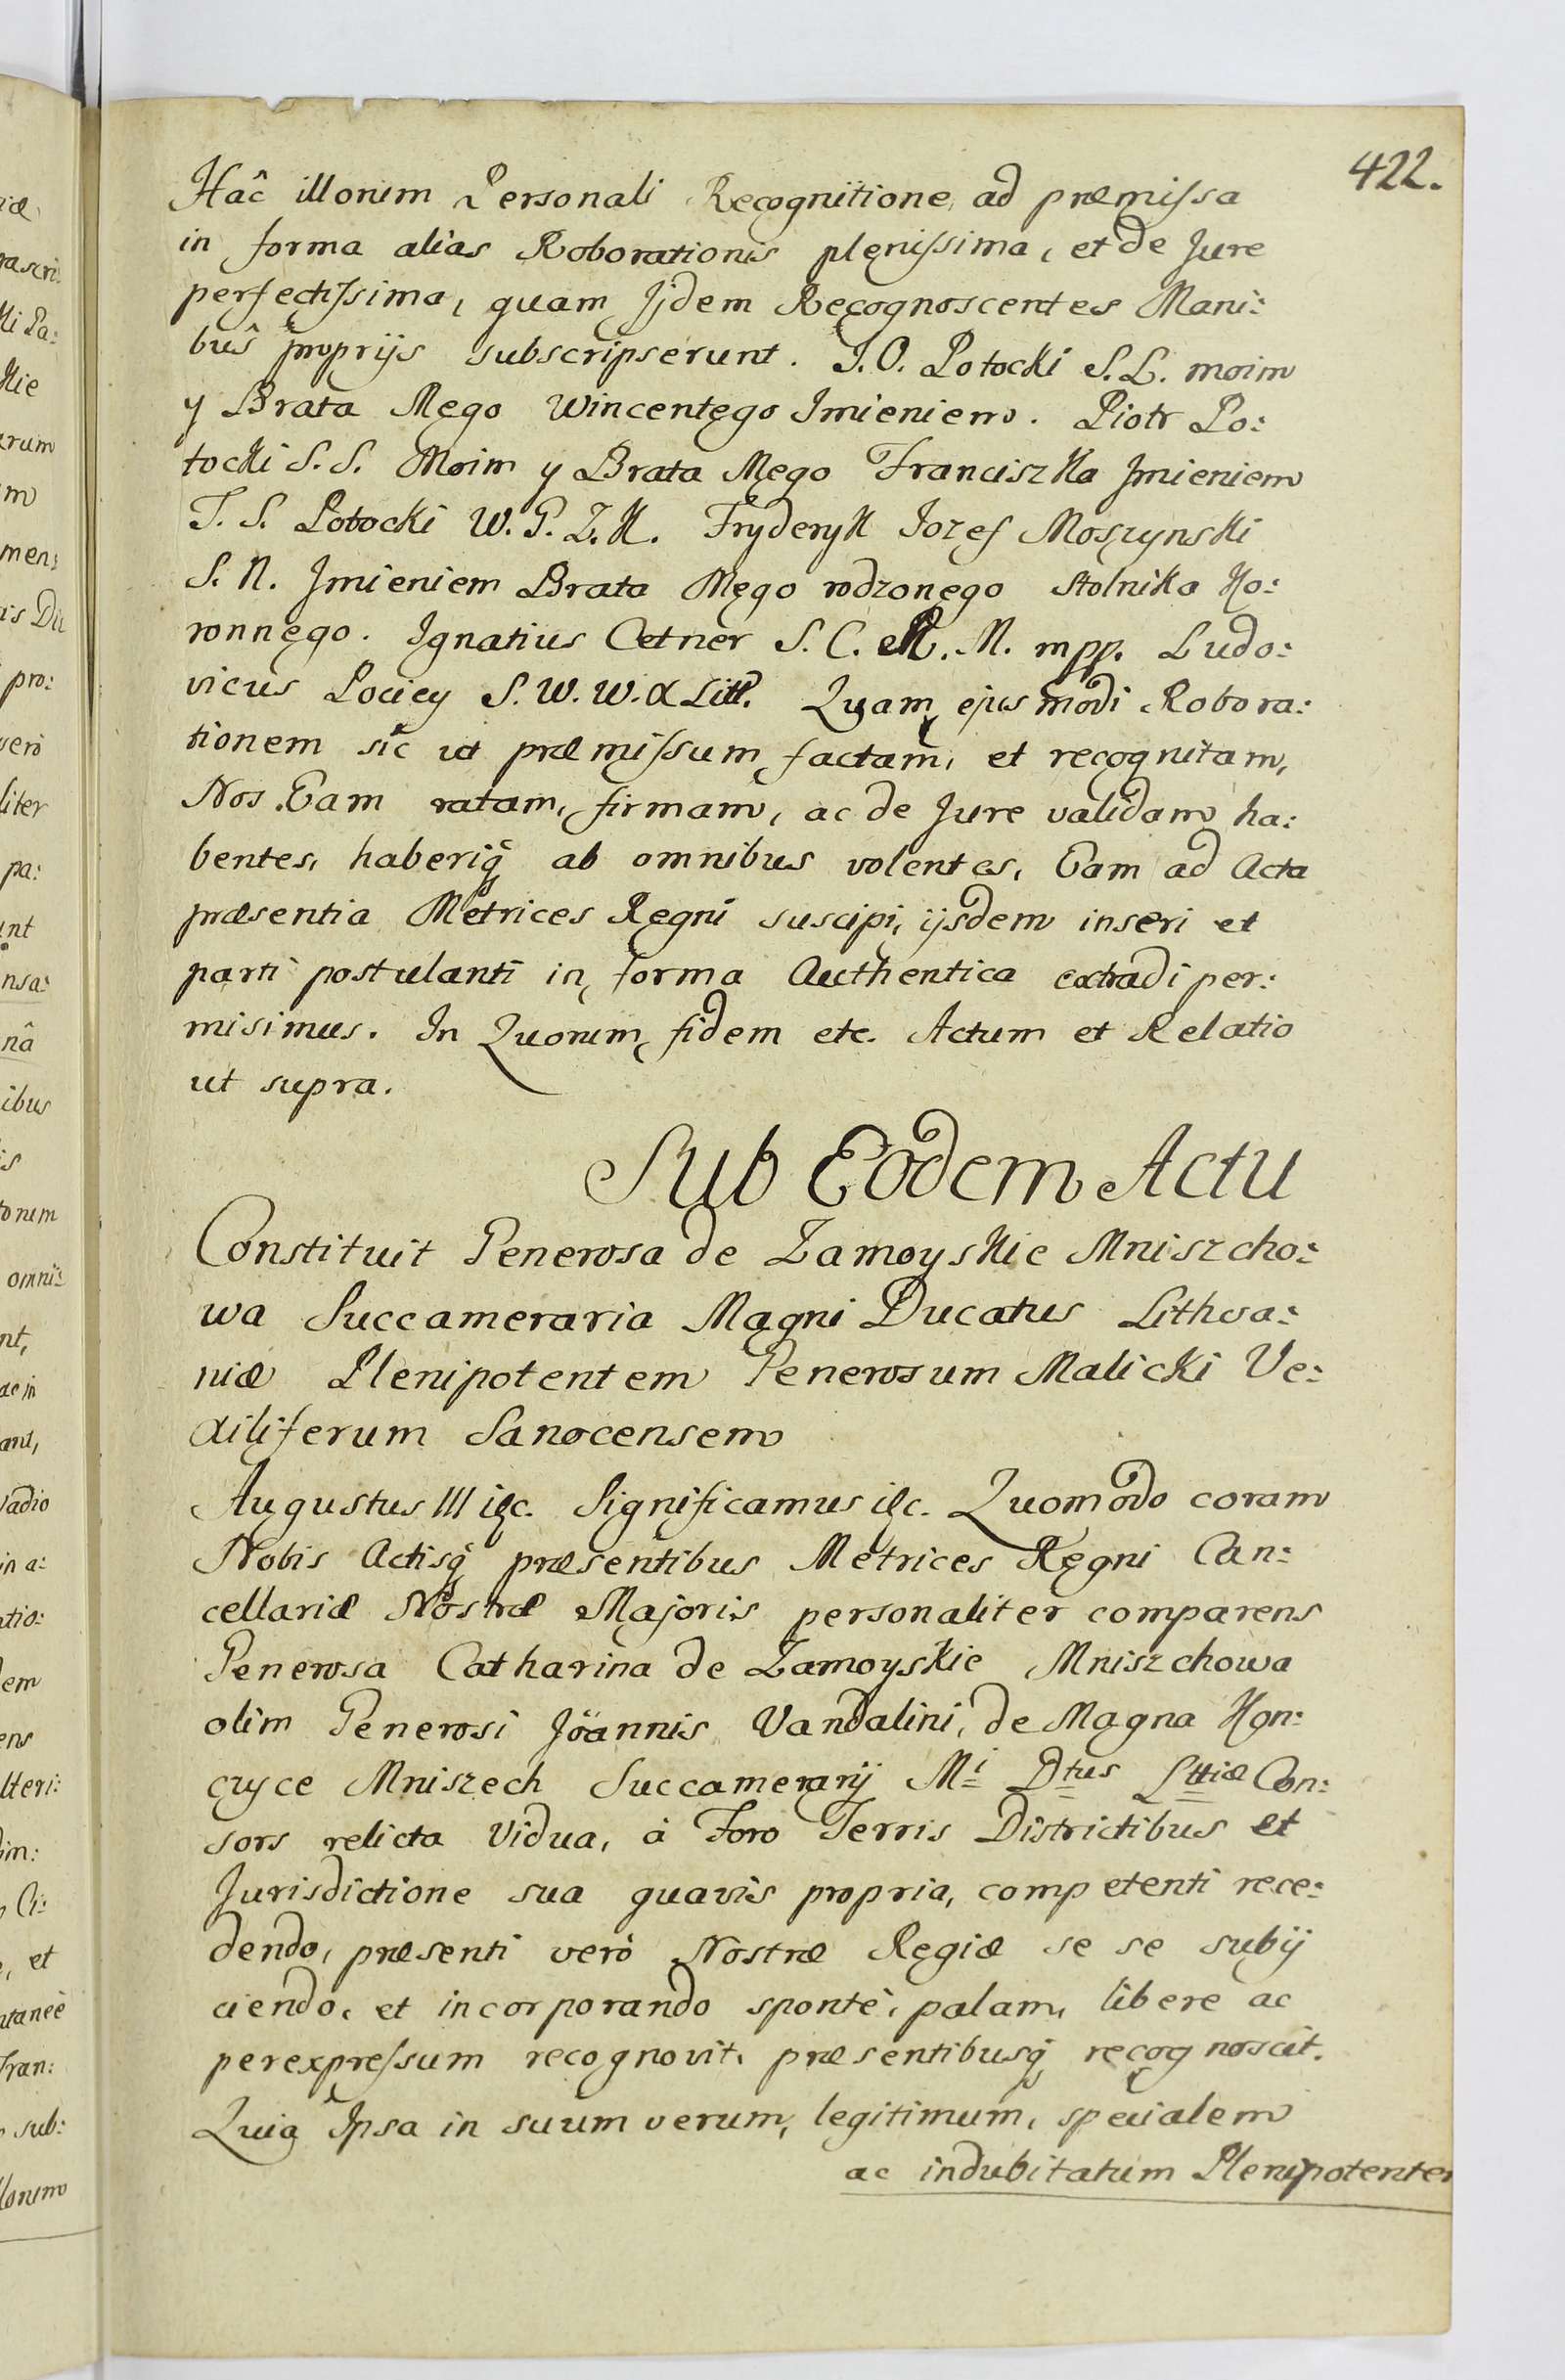 422.
Hâc illorum Personali Recognitione ad præmissa
in forma alias Roborationis plenissima, et de Jure
perfectissima, quam Jjdem Recognoscentes Mani:
bûs proprijs subscripserunt. J. O. Potocki S. L. moim
y Brata Mego Wincentego Jmieniem. Piotr Po:
tocki S. S. Moim y Brata Mego Franciszka Jmieniem
T. S. Potocki W. P. Z. K. Fryderyk Iozef Moszynski
S. N. Jmieniem Brata Mego rodzonego Stolnika Ko:
ronnego. Ignatius Cetner S. C. M. N. mpp. Ludo:
vicus Pociey S. W. W. X Litt. Quam ejus modi Robora:
tionem sic ut præmissum factam, et recognitam,
Nos Eam ratam, firmam, ac de Jure validam ha:
bentes, haberiq ab omnibus volentes, Eam ad Acta
præsentia Metrices Regni suscipi, ijsdem inseri et
parti postulanti in forma Authentica extradi per:
misimus. In Quorum fidem etc. Actum et Relatio
ut supra.
Sub Eodem Actu
Constituit Generosa de Zamoyskie Mniszcho:
wa Succameraria Magni Ducatus Lithva:
niæ Plenipotentem Generosum Malicki Ve:
xiliferum Sanocensem
Augustus III etc. Significamus etc. Quomodo coram
Nobis Actisq præsentibus Metrices Regni Can:
cellariæ Nostræ Majoris personaliter comparens
Generosa Catharina de Zamoyskie Mniszchowa
olim Generosi Jöannis Vandalini, de Magna Kon:
czyce Mniszech Succamerarij Mi Dtus Lttiæ Con:
sors relicta Vidua, à Foro Terris Districtibus et
Jurisdictione sua quavis propria, competenti rece:
dendo, præsenti verò Nostræ Regiæ se se subij
ciendo, et incorporando spontè, palam, libere ac
perexpressum recognovit, præsentibusq recognoscit.
Quia Ipsa in suum verum, legitimum, specialem
ac indubitatum Plenipotentem